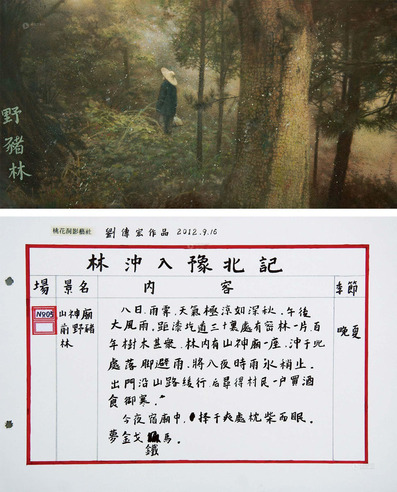 野豬林
桃花洞影藝社 劉傳宏作品 2012.9.16
林沖入豫北記
場 景名 內容 季節
No05 山神廟前野豬林 晚夏
八日.雨霁.天氣極涼如深秋.午後
大風雨.距漆坑道三十里處有密林一片.百
年樹木甚衆.林內有山神廟一座.沖于此
處落脚避雨.將八夜時雨水稍止.
出門沿山路緩行后尋得村民一户買酒
食御寒."
今夜宿廟中.擇干爽處枕柴而眠.
夢金戈鐵馬.